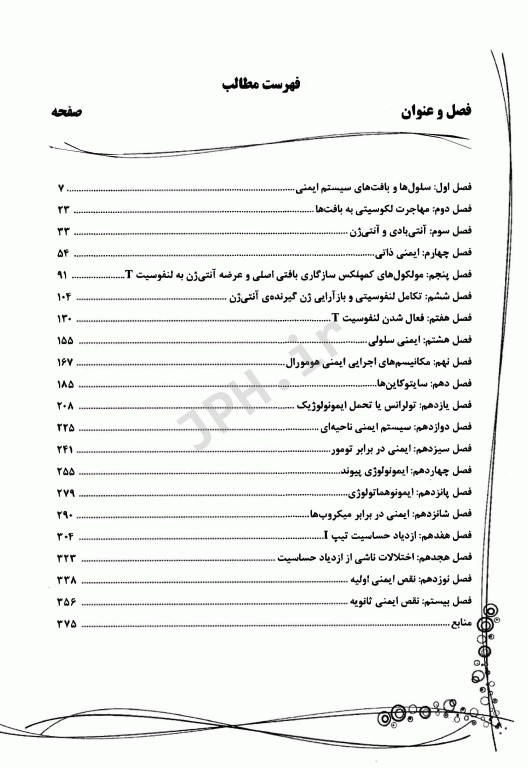 فهرست مطالب
فصل و عنوان صفحه
فصل اول: سلول‌ها و بافت‌های سیستم ایمنی ۷
فصل دوم: مهاجرت لکوسیتی به بافت‌ها ۲۳
فصل سوم: آنتی‌بادی و آنتی‌ژن ۳۳
فصل چهارم: ایمنی ذاتی ۵۴
فصل پنجم: مولکول‌های کمپلکس سازگاری بافتی اصلی و عرضه آنتی‌ژن به لنفوسیت T ۹۱
فصل ششم: تکامل لنفوسیتی و بازآرایی ژن گیرنده‌ی آنتی‌ژن ۱۰۴
فصل هفتم: فعال شدن لنفوسیت T ۱۳۰
فصل هشتم: ایمنی سلولی ۱۵۵
فصل نهم: مکانیسم‌های اجرایی ایمنی هومورال ۱۶۷
فصل دهم: سایتوکاین‌ها ۱۸۵
فصل یازدهم: تولرانس یا تحمل ایمونولوژیک ۲۰۸
فصل دوازدهم: سیستم ایمنی ناحیه‌ای ۲۲۵
فصل سیزدهم: ایمنی در برابر تومور ۲۴۱
فصل چهاردهم: ایمونولوژی پیوند ۲۵۵
فصل پانزدهم: ایمونوهماتولوژی ۲۷۹
فصل شانزدهم: ایمنی در برابر میکروب‌ها ۲۹۰
فصل هفدهم: ازدیاد حساسیت تیپ I ۳۰۴
فصل هجدهم: اختلالات ناشی از ازدیاد حساسیت ۳۲۳
فصل نوزدهم: نقص ایمنی اولیه ۳۳۸
فصل بیستم: نقص ایمنی ثانویه ۳۵۶
منابع ۳۷۵
JPH.ir